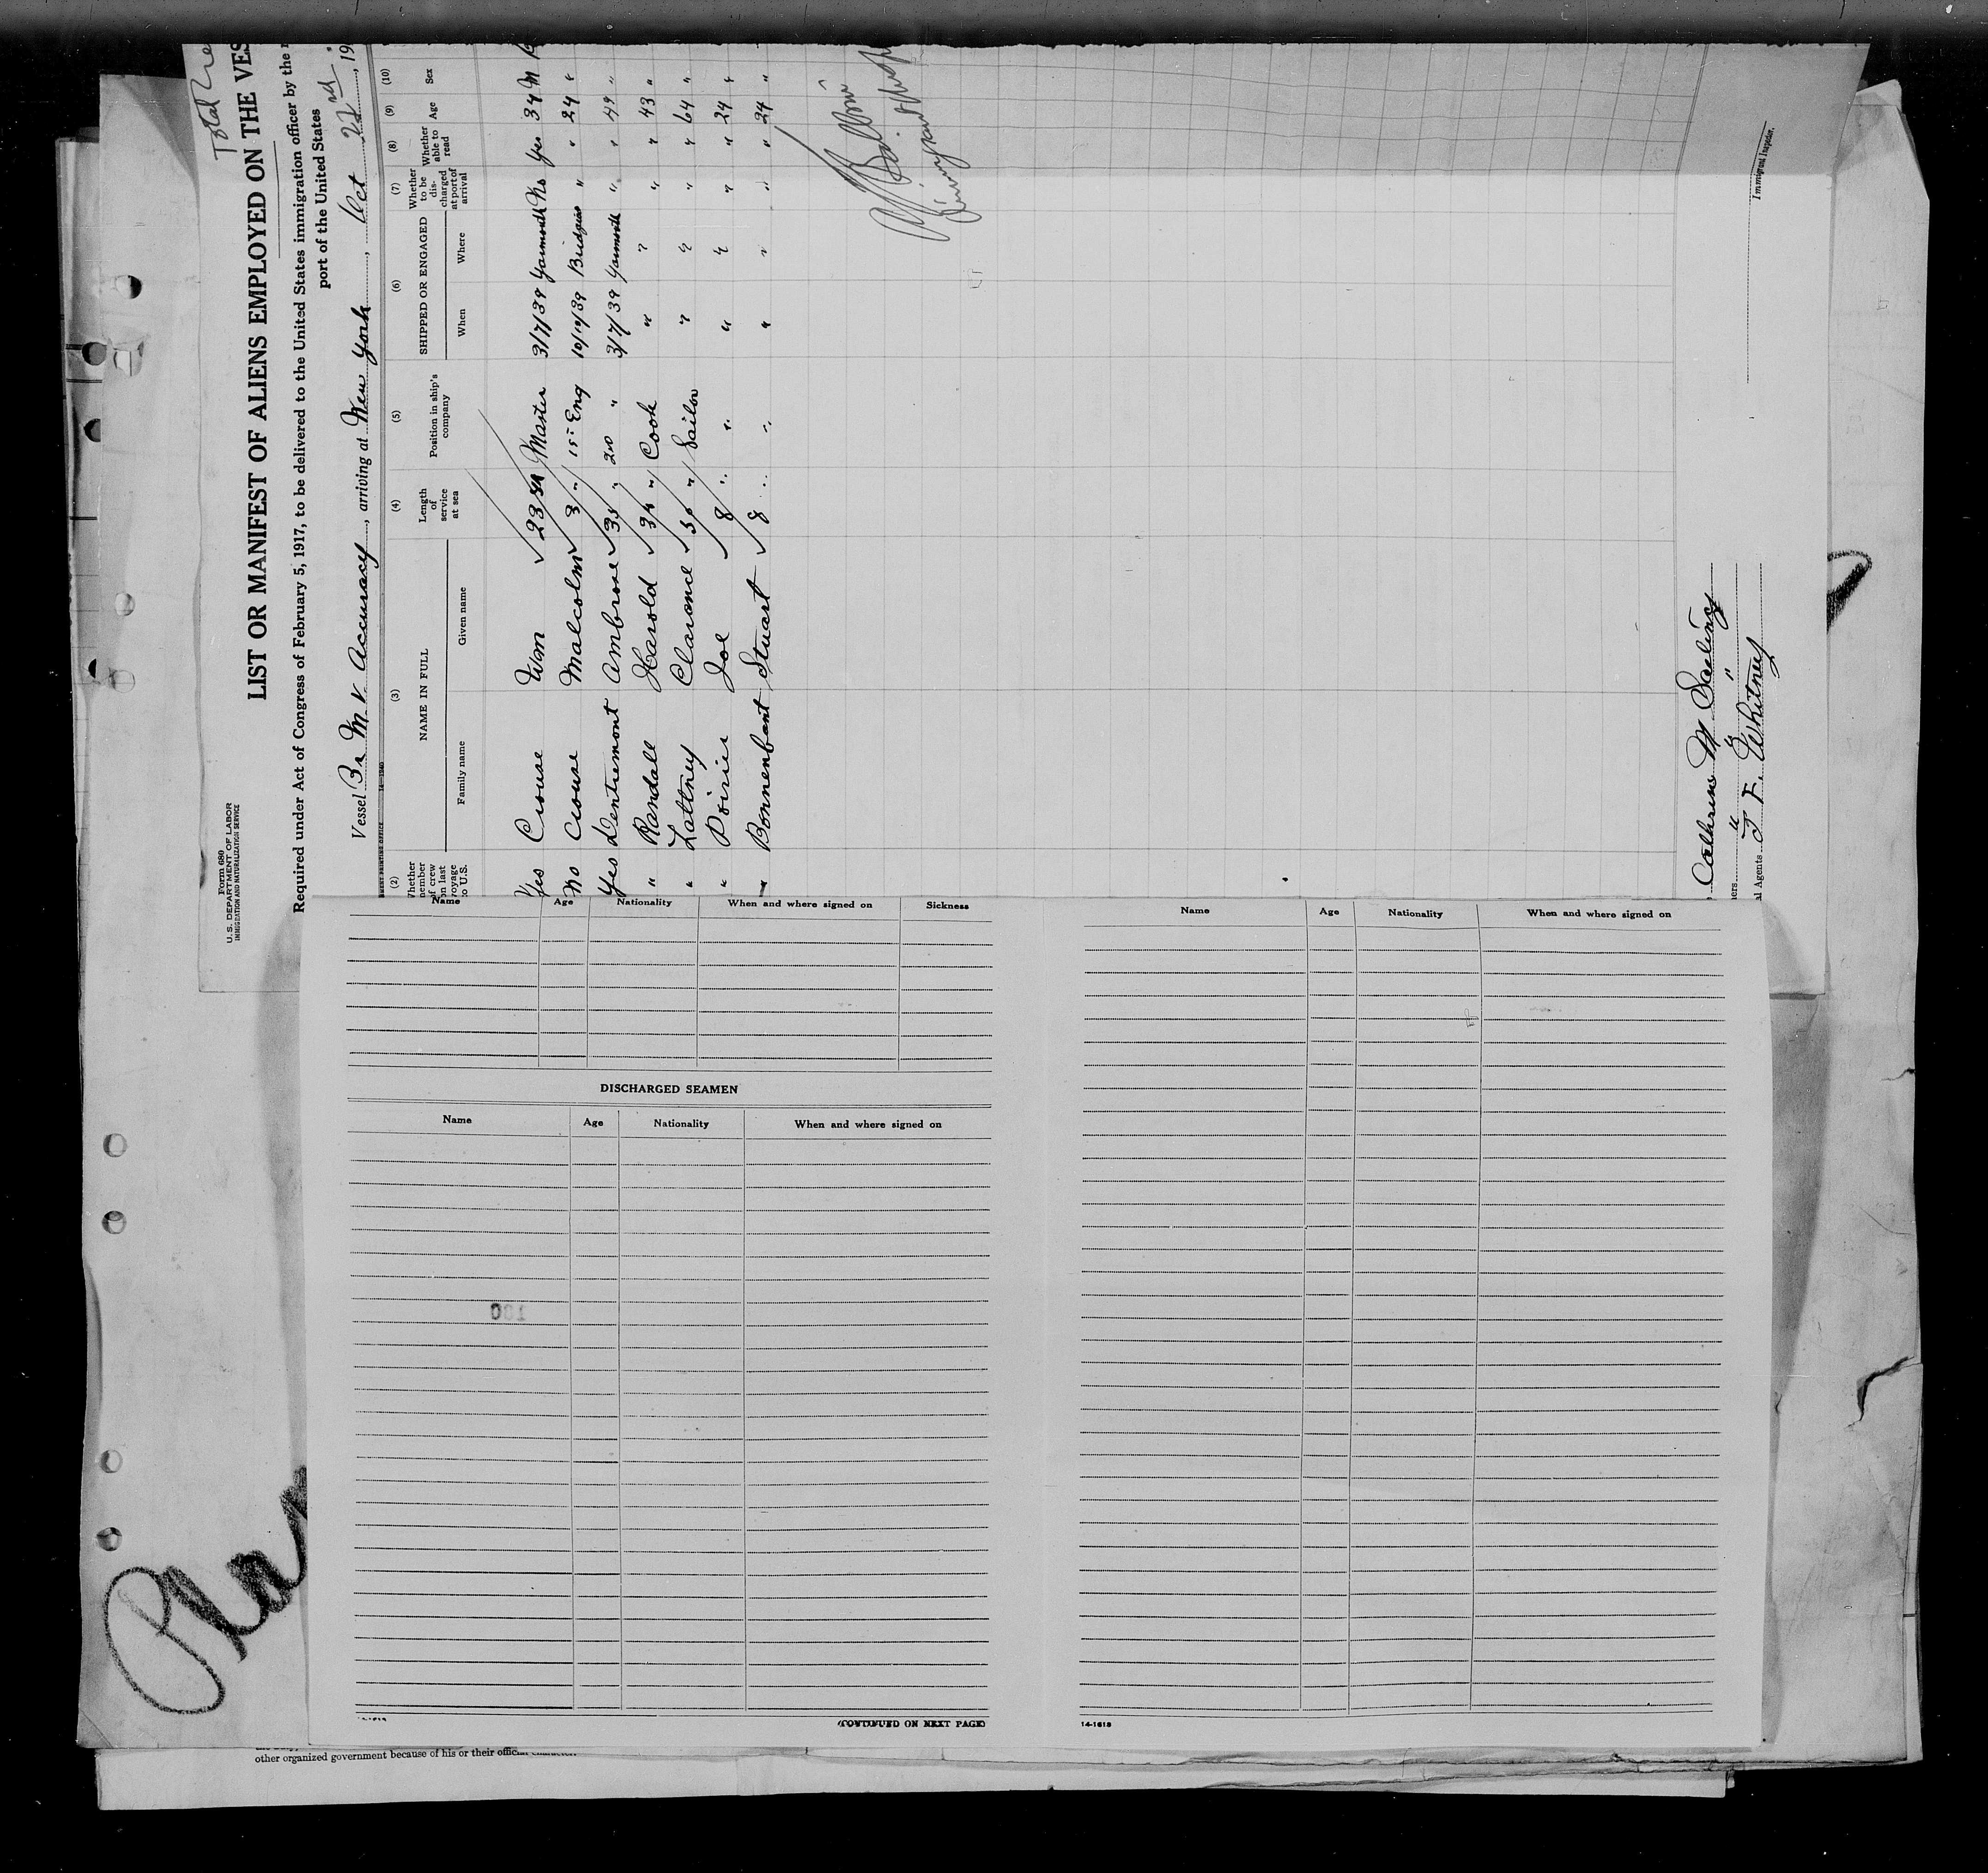 Form 680
U. S. DEPARTMENT OF LABOR
IMMIGRATION AND NATURALIZATION SERVICE
Total
LIST OR MANIFEST OF ALIENS EMPLOYED ON THE VES
Required under Act of Congress of February 5, 1917, to be delivered to the United States immigration officer by the
port of the United States
Vessel Br M V. Accuracy, arriving at New York, Oct 22nd, 19
(2) (3) (4) (5) (6) (7) (8) (9) (10)
Whether member of crew on last voyage to U.S. NAME IN FULL Length of service at sea Position in ship's company SHIPPED OR ENGAGED Whether to be discharged at port of arrival Whether able to read Age Sex
Family name Given name When Where
Yes Crouse Wm 23 Master 3/7/39 Yarmouth No Yes 34 M
No Crouse Malcolm 3 " 1st Eng 10/10/39 Bridgew " " 24 "
Yes Dentremont Ambrose 35 " 2nd " 3/7/39 Yarmouth " " 49 "
" Randall Harold " Cook " " " " 43 "
" Lattney Clarence " Sailor " " " " 64 "
" Poirier Joe 8 " " " " " " 24 "
" Bonnenbant Stuart 8 " " " " " " 24 "
Immigrant Inspector.
Cathrine M
" "
al Agents J. E. Whitney
Name Age Nationality When and where signed on Sickness
DISCHARGED SEAMEN
Name Age Nationality When and where signed on
100
(CONTINUED ON NEXT PAGE)
Name Age Nationality When and where signed on
14-1613
other organized government because of his or their official character.